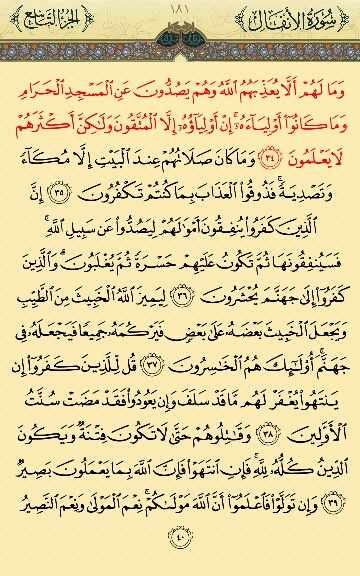 سُورَةُ الأَنفَال ١٨١ الجُزءُ التَّاسِعُ
وَمَا لَهُمْ أَلَّا يُعَذِّبَهُمُ ٱللَّهُ وَهُمْ يَصُدُّونَ عَنِ ٱلْمَسْجِدِ ٱلْحَرَامِ
وَمَا كَانُوٓا۟ أَوْلِيَآءَهُۥٓ ۚ إِنْ أَوْلِيَآؤُهُۥٓ إِلَّا ٱلْمُتَّقُونَ وَلَٰكِنَّ أَكْثَرَهُمْ
لَا يَعْلَمُونَ ٣٤ وَمَا كَانَ صَلَاتُهُمْ عِندَ ٱلْبَيْتِ إِلَّا مُكَآءً
وَتَصْدِيَةً ۚ فَذُوقُوا۟ ٱلْعَذَابَ بِمَا كُنتُمْ تَكْفُرُونَ ٣٥ إِنَّ
ٱلَّذِينَ كَفَرُوا۟ يُنفِقُونَ أَمْوَٰلَهُمْ لِيَصُدُّوا۟ عَن سَبِيلِ ٱللَّهِ ۚ
فَسَيُنفِقُونَهَا ثُمَّ تَكُونُ عَلَيْهِمْ حَسْرَةً ثُمَّ يُغْلَبُونَ ۗ وَٱلَّذِينَ
كَفَرُوٓا۟ إِلَىٰ جَهَنَّمَ يُحْشَرُونَ ٣٦ لِيَمِيزَ ٱللَّهُ ٱلْخَبِيثَ مِنَ ٱلطَّيِّبِ
وَيَجْعَلَ ٱلْخَبِيثَ بَعْضَهُۥ عَلَىٰ بَعْضٍ فَيَرْكُمَهُۥ جَمِيعًا فَيَجْعَلَهُۥ فِى
جَهَنَّمَ ۚ أُو۟لَٰٓئِكَ هُمُ ٱلْخَٰسِرُونَ ٣٧ قُل لِّلَّذِينَ كَفَرُوٓا۟ إِن
يَنتَهُوا۟ يُغْفَرْ لَهُم مَّا قَدْ سَلَفَ وَإِن يَعُودُوا۟ فَقَدْ مَضَتْ سُنَّتُ
ٱلْأَوَّلِينَ ٣٨ وَقَٰتِلُوهُمْ حَتَّىٰ لَا تَكُونَ فِتْنَةٌ وَيَكُونَ
ٱلدِّينُ كُلُّهُۥ لِلَّهِ ۚ فَإِنِ ٱنتَهَوْا۟ فَإِنَّ ٱللَّهَ بِمَا يَعْمَلُونَ بَصِيرٌ
٣٩ وَإِن تَوَلَّوْا۟ فَٱعْلَمُوٓا۟ أَنَّ ٱللَّهَ مَوْلَىٰكُمْ ۚ نِعْمَ ٱلْمَوْلَىٰ وَنِعْمَ ٱلنَّصِيرُ
٤٠